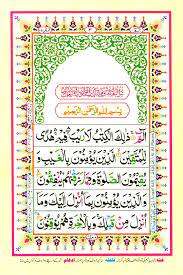 بِسْمِ اللهِ الرَّحْمٰنِ الرَّحِيْمِ
الٓمّٓ ذٰلِكَ الْكِتٰبُ لَا رَيْبَ فِيْهِ هُدًى
لِّلْمُتَّقِيْنَ الَّذِيْنَ يُؤْمِنُوْنَ بِالْغَيْبِ وَ
يُقِيْمُوْنَ الصَّلٰوةَ وَمِمَّا رَزَقْنٰهُمْ يُنْفِقُوْنَ
وَالَّذِيْنَ يُؤْمِنُوْنَ بِمَا اُنْزِلَ اِلَيْكَ وَمَا
اُنْزِلَ مِنْ قَبْلِكَ وَبِالْاٰخِرَةِ هُمْ يُوْقِنُوْنَ